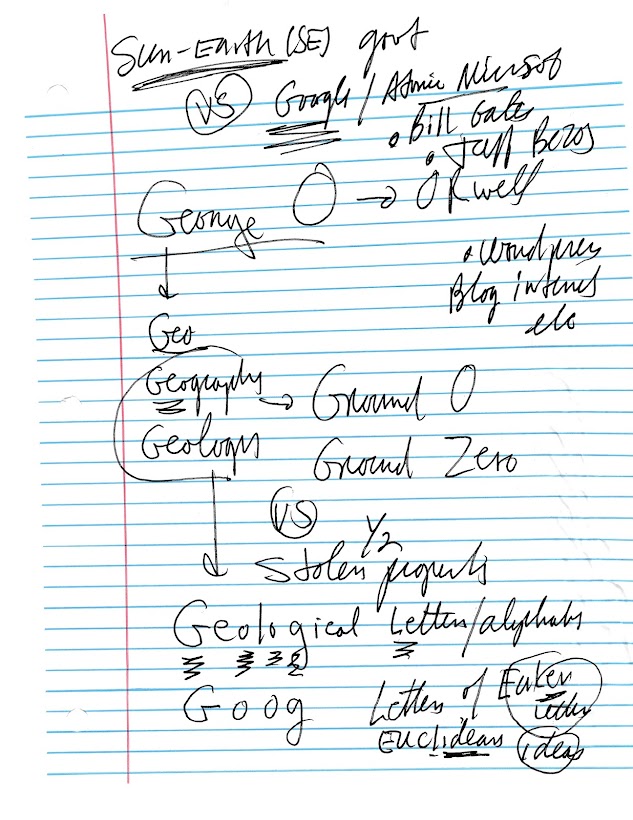 Sun-Earth (SE) govt
VS Google / Atomic Microsof
• Bill Gates
• Jeff Bezos
George O → Orwell
• Wordpress
Blog internet
etc
Geo
Geography → Ground O
Geology Ground Zero
VS
1/2
Stolen property
Geological Letters/alphabets
Goog Letters of
Euclideans ideas